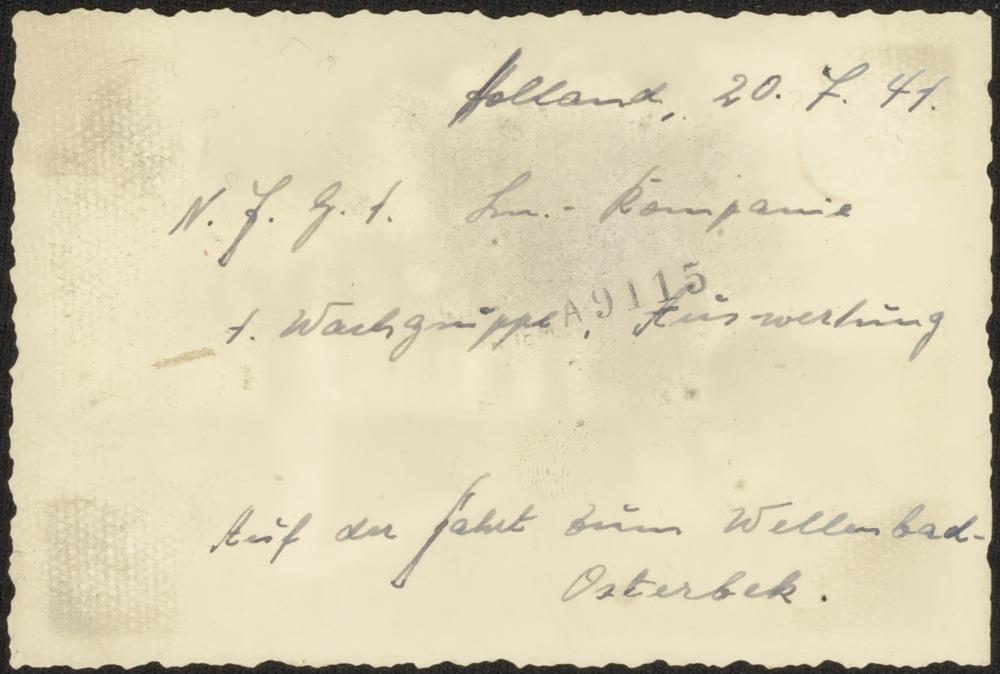 Holland, 20. 7. 41.
N. J. G. 1. Ln.- Kompanie
A9115
1. Wachgruppe, Auswertung
Auf der Fahrt zum Wellenbad-
Osterbek.